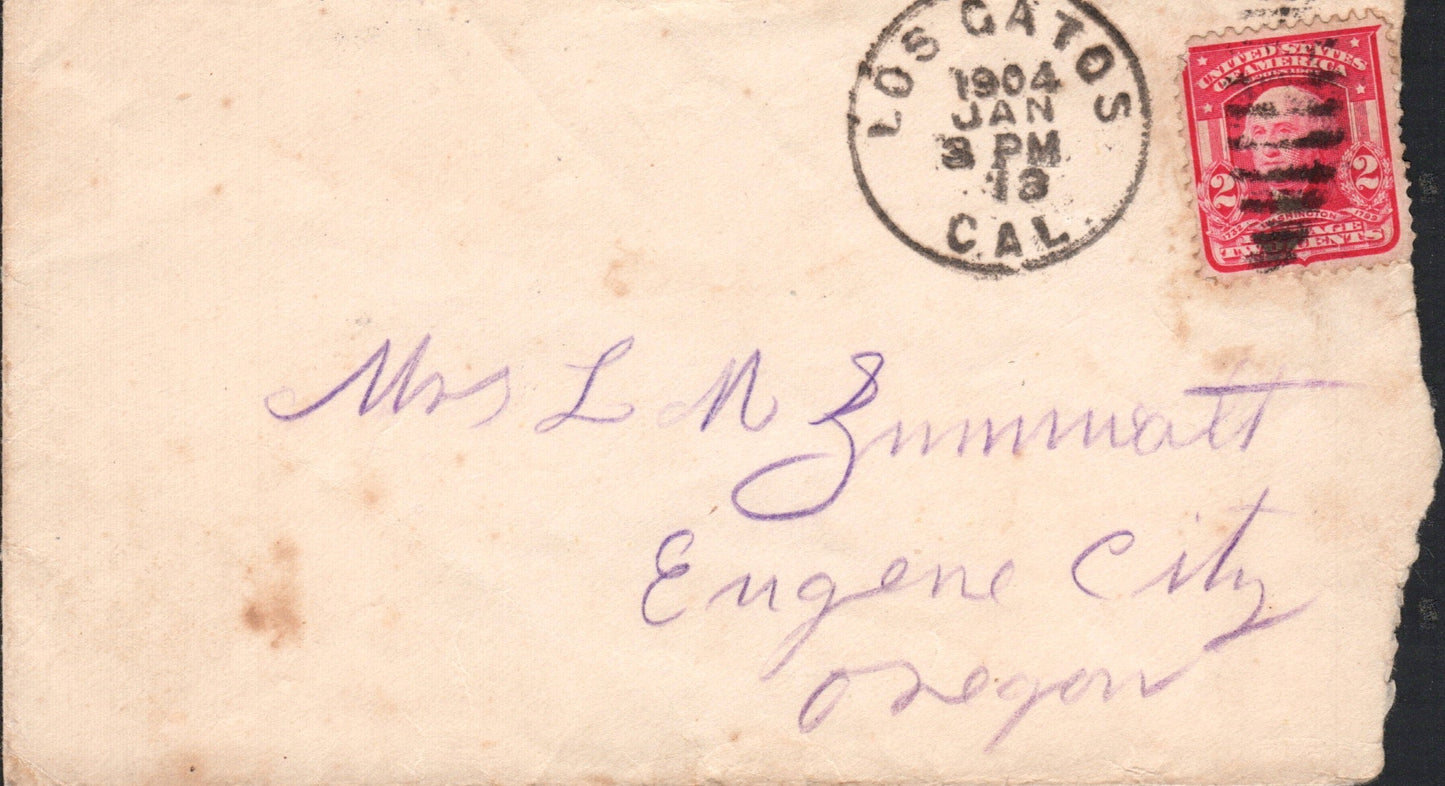 LOS GATOS
1904
JAN
3 PM
13
CAL.
UNITED STATES
OF AMERICA
2 2
WASHINGTON
TWO CENTS
Mrs L M Zumwalt
Eugene City
Oregon